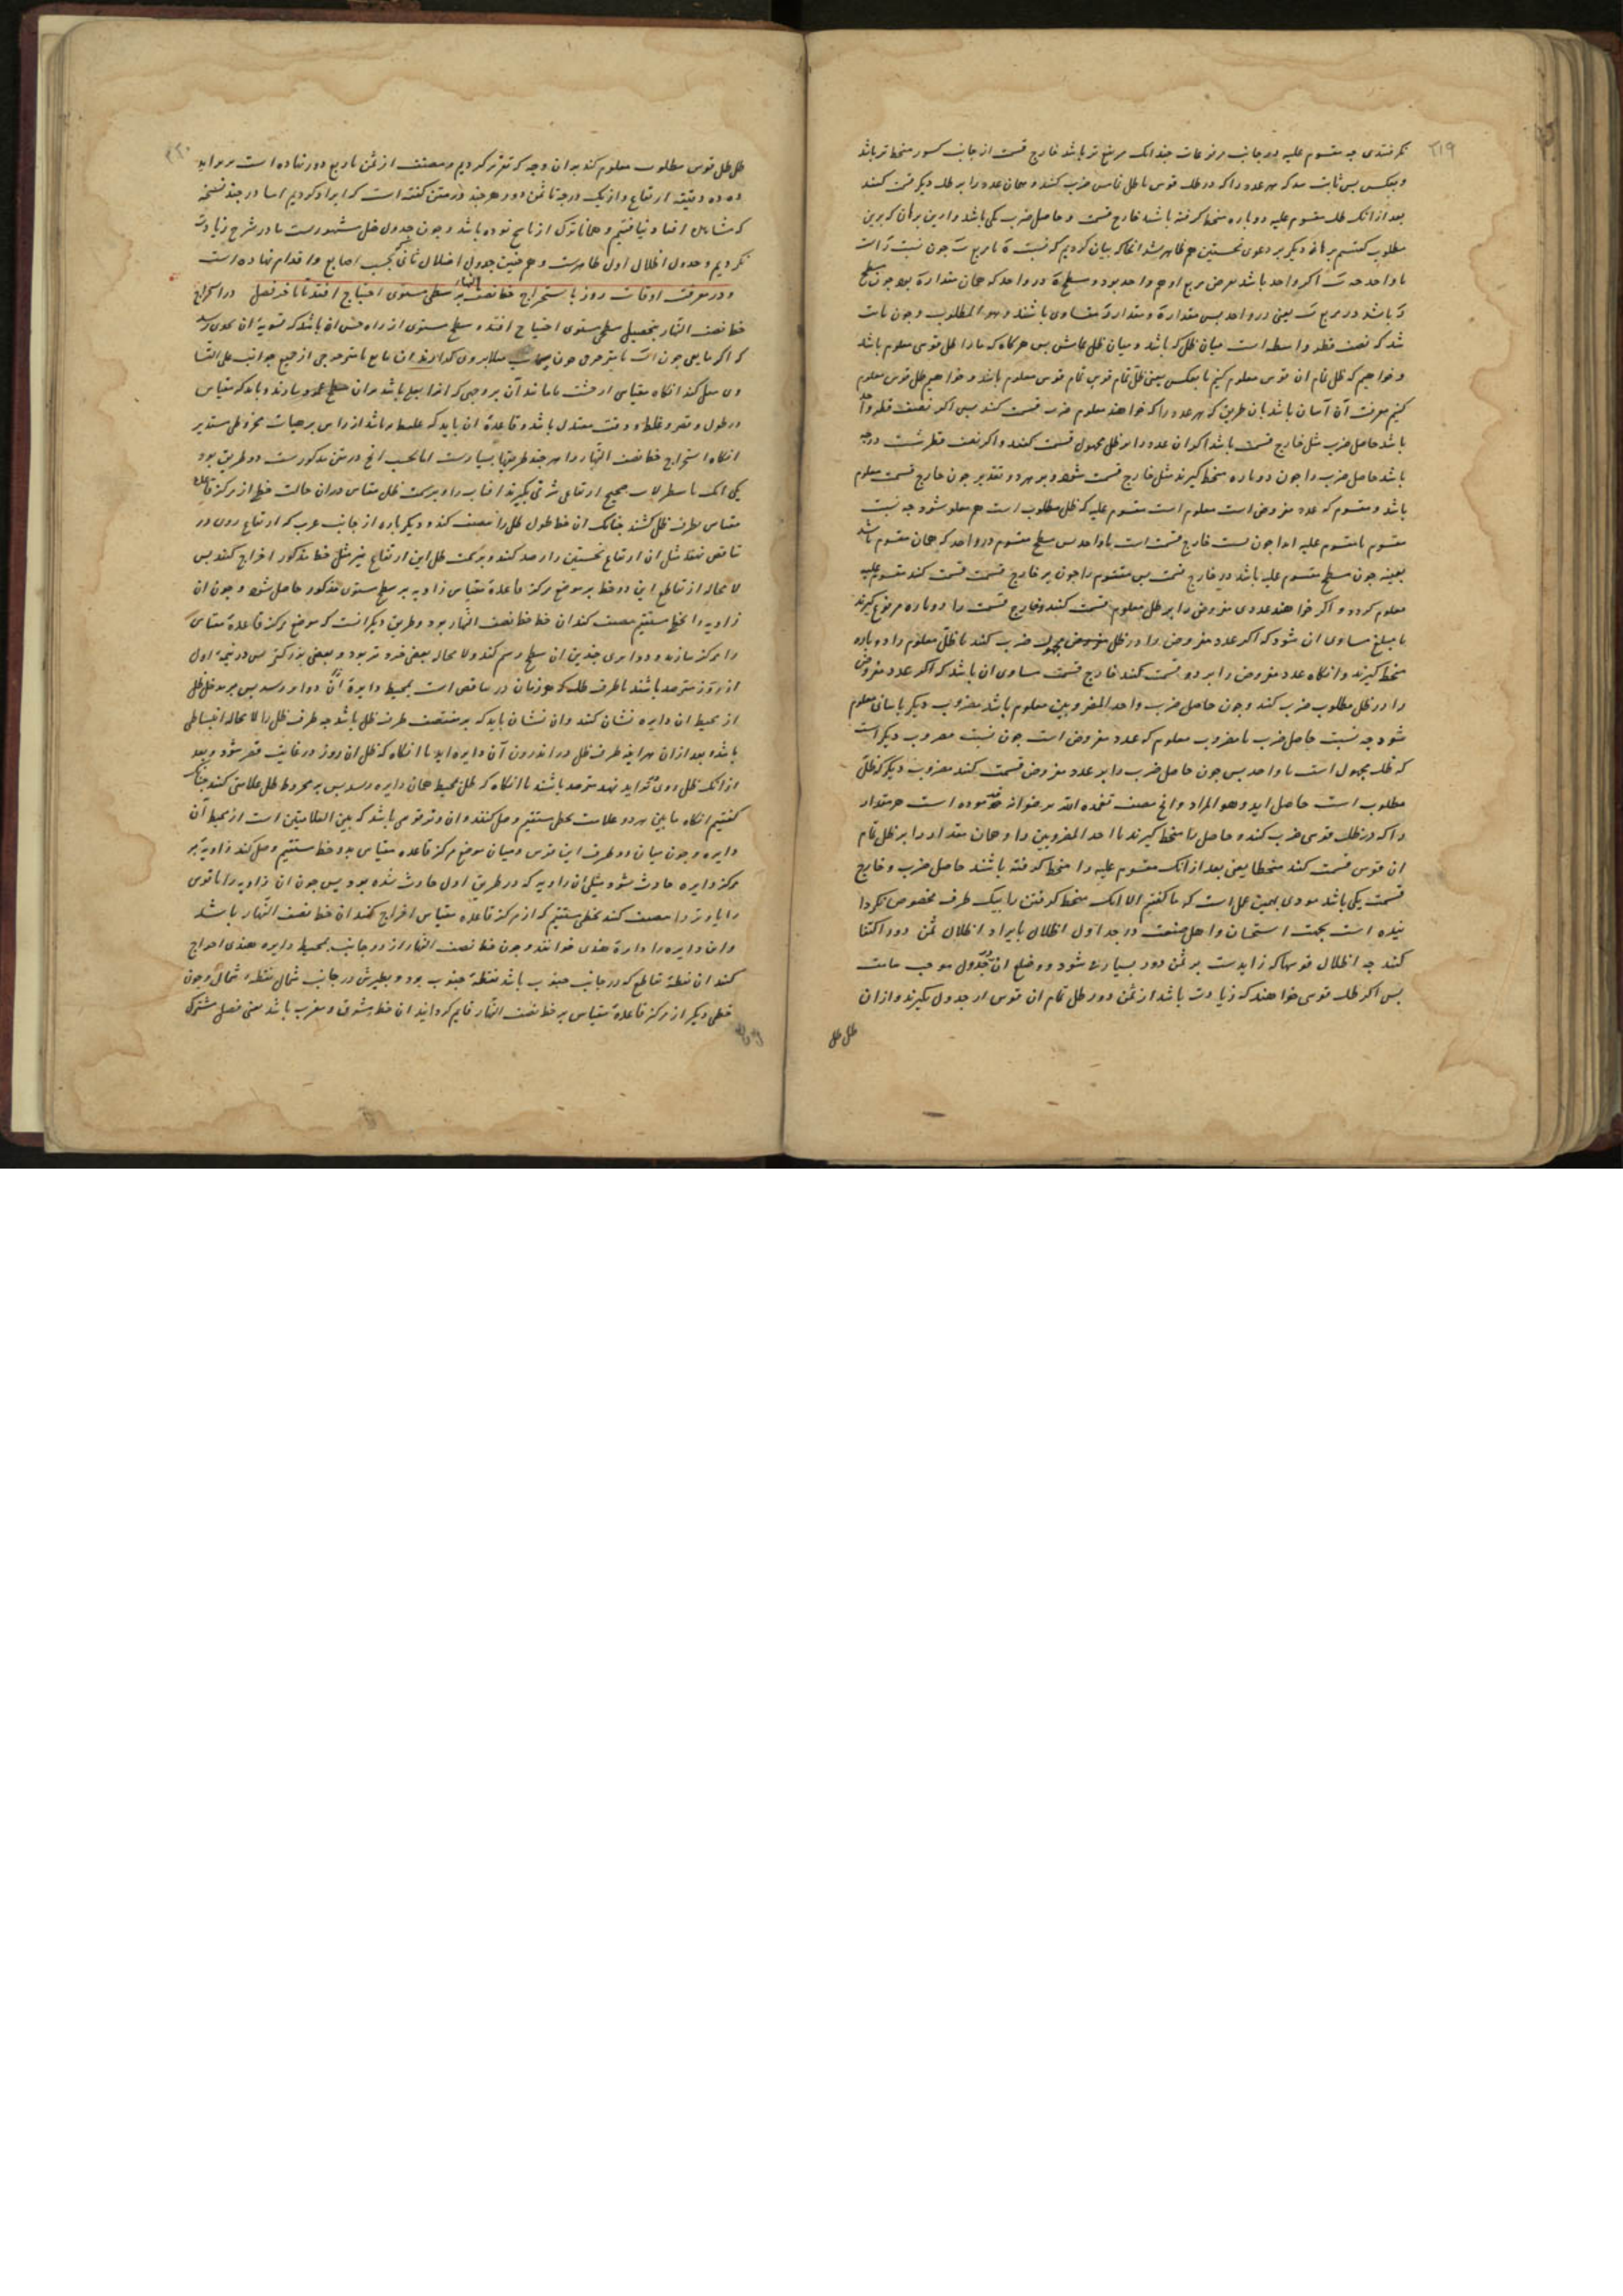 ۲۱۹
نکرفتندی چه مقسوم علیه در جانب مرفوعات چندانک مرتفع تر باشد خارج قسمت از جانب کسور منحط تر باشد
و بعکس بس ثابت شد که هر عدد را که در ظل قوس با ظل ضرب کنند و همان عدد را بر ظل دیکر قسمت کنند
بعد از انک ظل مقسوم علیه دوباره منحط کرفته باشد خارج قسمت و حاصل ضرب یکی باشد و این برهان که برین
مطلوب کفتیم برهانی دیکر بر دعوی نخستین هم ظاهر شد انجا که بیان کردیم که نسبت با مربع چون نسبت است
با واحد اکر واحد باشد مربع او هم واحد بود و سطح در واحد که همان مقدار بود چون سطح
باشد در مربع یعنی در واحد بس مقدار و مقدار متساوی باشند و هو المطلوب و چون ثابت
شد که نصف قطر واسطه است میان ظل که باشد و میان ظل تمامش بس هرکاه که ما را ظل قوسی معلوم باشد
و خواهیم که ظل تمام ان قوس معلوم کنیم یا بعکس یعنی ظل تمام قوس تمام قوس معلوم باشد و خواهیم ظل قوس معلوم
کنیم معرفت آن آسان باشد بان طریق که هر عدد را که خواهند معلوم ضرب قسمت کنند بس اکر نصف قطر واحد
باشد حاصل ضرب مثل خارج قسمت باشد اکر ان عدد را بر ظل مجهول قسمت کنند و اکر نصف قطر شصت درجه
باشد حاصل ضرب را چون دوباره منحط کیرند مثل خارج قسمت شود و بر هر دو تقدیر چون خارج قسمت معلوم
باشد و مقسوم که عدد مفروض است معلوم است مقسوم علیه که ظل مطلوب است هم معلوم شود چه نسبت
مقسوم با مقسوم علیه ابدا چون نسبت خارج قسمت است با واحد بس سطح مقسوم در واحد که همان مقسوم باشد
بعینه چون سطح مقسوم علیه باشد در خارج قسمت بس مقسوم را چون بر خارج قسمت قسمت کنند مقسوم علیه
معلوم کردد و اکر خواهند عددی مفروض را بر ظل معلوم قسمت کنند و خارج قسمت را دوباره مرفوع کیرند
تا مبلغ مساوی ان شود که اکر عدد مفروض را در ظل مجهول ضرب کنند یا ظل معلوم را دوباره
منحط کیرند و انکاه عدد مفروض را بر او قسمت کنند خارج قسمت مساوی ان باشد که اکر عدد مفروض
را در ظل مطلوب ضرب کنند و چون حاصل ضرب و احد المضروبین معلوم باشد مضروب دیکر باسانی معلوم
شود چه نسبت حاصل ضرب با مضروب معلوم که عدد مفروض است چون نسبت مضروب دیکر است
که ظل مجهول است با واحد بس چون حاصل ضرب را بر عدد مفروض قسمت کنند مضروب دیکر که ظل
مطلوب است حاصل اید و هو المراد و انچ مصنف تغمده الله برضوانه فرموده است هر مقدار
را که در ظل قوسی ضرب کنند و حاصل را منحط کیرند یا احد المضروبین را و همان مقدار را بر ظل تمام
ان قوس قسمت کنند منحطا یعنی بعد از انک مقسوم علیه را منحط کرفته باشند حاصل ضرب و خارج
قسمت یکی باشد مودی بهمین عمل است که ما کفتیم الا انک منحط کرفتن را بیک طرف مخصوص نکردا
نیده است بجهت استحسان و اهل صنعت در جداول اظلال بایراد اظلال ثمن دور اکتفا
کنند چه اظلال قوسها که زایدست بر ثمن دور بسیار شود و وضع ان در جدول موجب سامت
بس اکر ظل قوسی خواهند که زیادت باشد از ثمن دور ظل تمام ان قوس از جدول بکیرند و ازان
ظل ظل
۲۲۰
ظل ظل قوس مطلوب معلوم کنند بدان وجه که تقریر کردیم و مصنف از ثمن تا ربع دور نهاده است بر براید
ده ده دقیقه ارتفاع و از یک درجه تا ثمن دور هرچند در متن کفته است که ایراد کردیم اما در چند نسخه
که بما رسید نیافتیم و همانا ترک از ناسخ بوده باشد و چون جدول ظل مشهورست ما در شرح زیادت
نکردیم و جدول اظلال اول ظاهرست و همچنین جدول اظلال ثانی بحسب اصابع و اقدام نهاده است
و در معرفت اوقات روز باستخراج خط نصف النهار بر سطحی مستوی احتیاج افتد تا باخر فصل در استخراج
خط نصف النهار بتحصیل سطحی مستوی احتیاج افتد و سطح مستوی از راه حس ان باشد که تسویه ان بحدی رسد
که اکر مایعی چون آب یا متحرکی چون سیماب مثلا بر وی کذارند ان مایع یا متدحرجی از جمیع جوانب علی التسا
وی میل کند انکاه مقیاسی از خشب یا مانند آن بر وجهی که باشد بران سطح عمود بدارند و باید که مقیاس
در طول و قصر و غلظ و دقت معتدل باشد و قاعده ان باید که غلیظ تر باشد از راس بر هیات مخروطی مستدیر
انکاه استخراج خط نصف النهار را هرچند طریقها بسیارست اما بحسب انچ در متن مذکورست دو طریق بود
یکی انک باسطرلاب صحیح ارتفاعی شرقی بکیرند افتاب را و بر سمت ظل مقیاس دران حالت خطی از مرکز قاعده
مقیاس بطرف ظل کشند چنانک ان خط طول ظل را منصف کند و دیکر باره از جانب غرب که ارتفاع روی در
تناقص نهد مثل ان ارتفاع نخستین را رصد کنند و بر سمت ظل این ارتفاع نیز مثل خط مذکور اخراج کنند بس
لا محاله از تقاطع این دو خط بر موضع مرکز قاعده مقیاس زاویه بر سطح مستوی مذکور حاصل شود و چون ان
زاویه را بخطی مستقیم منصف کنند ان خط خط نصف النهار بود و طریق دیکر انست که موضع مرکز قاعده مقیاس
را مرکز سازند و دوایری چندین ان سطح رسم کنند و لا محاله بعضی خردتر بود و بعضی بزرکتر بس در نیمه اول
از روز مترصد باشند تا طرف ظل که هر زمان در تناقص است بمحیط دایره ان دوایر رسد بس بر مدخل ظل
از محیط ان دایره نشان کنند و ان نشان باید که بر منتصف طرف ظل باشد چه طرف ظل را لا محاله انبساطی
باشد و بعد ازان هراینه طرف ظل در اندرون آن دایره اید تا انکاه که ظل ان روز در غایت قصر شود و بعد
ازانک ظل روی بتزاید نهد مترصد باشند تا انکاه که ظل بمحیط همان دایره رسد بس بر مخروط ظل علامتی کنند چنانک
کفتیم انکاه ما بین هر دو علامت بخطی مستقیم وصل کنند و ان وتر قوسی باشد که بین العلامتین است از محیط آن
دایره و چون میان دو طرف این قوس و میان موضع مرکز قاعده مقیاس بدو خط مستقیم وصل کنند زاویه بر
مرکز دایره حادث شود مثل ان زاویه که در طریق اول حادث شده بود بس چون ان زاویه را یا قوس
را یا وتر را منصف کنند بخطی مستقیم که از مرکز قاعده مقیاس اخراج کنند ان خط نصف النهار باشد
و این دایره را دایره هندی خوانند و چون خط نصف النهار از دو جانب بمحیط دایره هندی اخراج
کنند ان نقطه تقاطع که در جانب جنوب باشد نقطه جنوب بود و نظیرش در جانب شمال نقطه شمال و چون
خطی دیکر از مرکز قاعده مقیاس بر خط نصف النهار قایم کردانند ان خط مشرق و مغرب باشد یعنی فصل مشترک